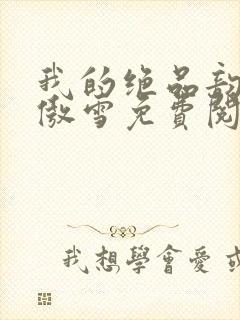 我的绝品
傲雪免費閱
我想學會愛 或